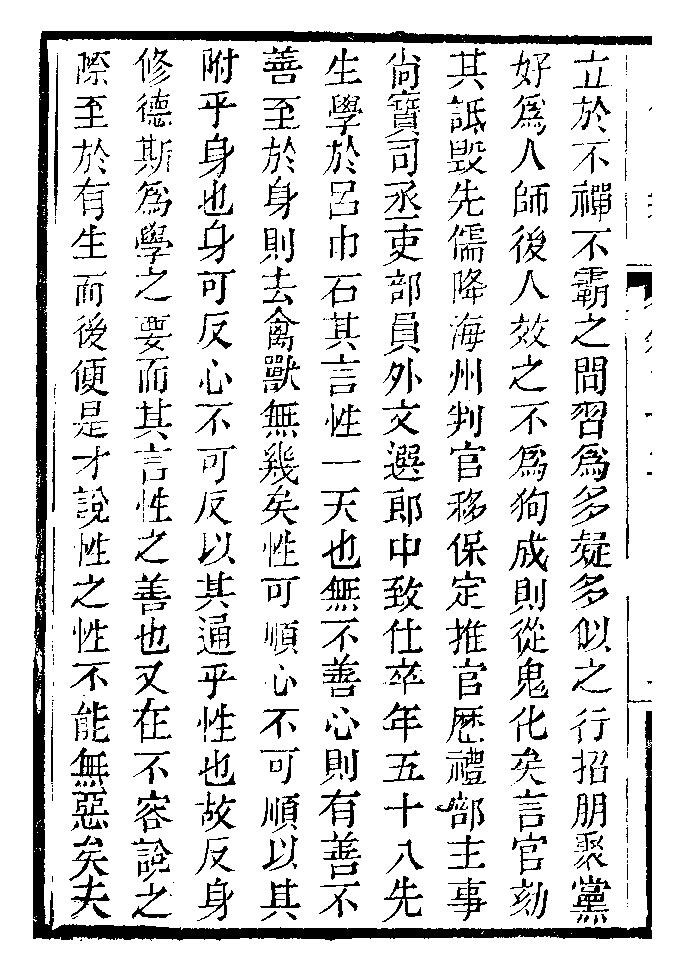 立於不禪不霸之間習爲多疑多似之行招朋聚黨
好爲人師後人效之不爲狗成則從鬼化矣言官劾
其詆毀先儒降海州判官移保定推官歷禮部主事
尙寶司丞吏部員外文選郎中致仕卒年五十八先
生學於呂巾石其言性一天也無不善心則有善不
善至於身則去禽獸無幾矣性可順心不可順以其
附乎身也身可反心不可反以其通乎性也故反身
修德斯爲學之要而其言性之善也又在不容說之
際至於有生而後便是才說性之性不能無惡矣夫